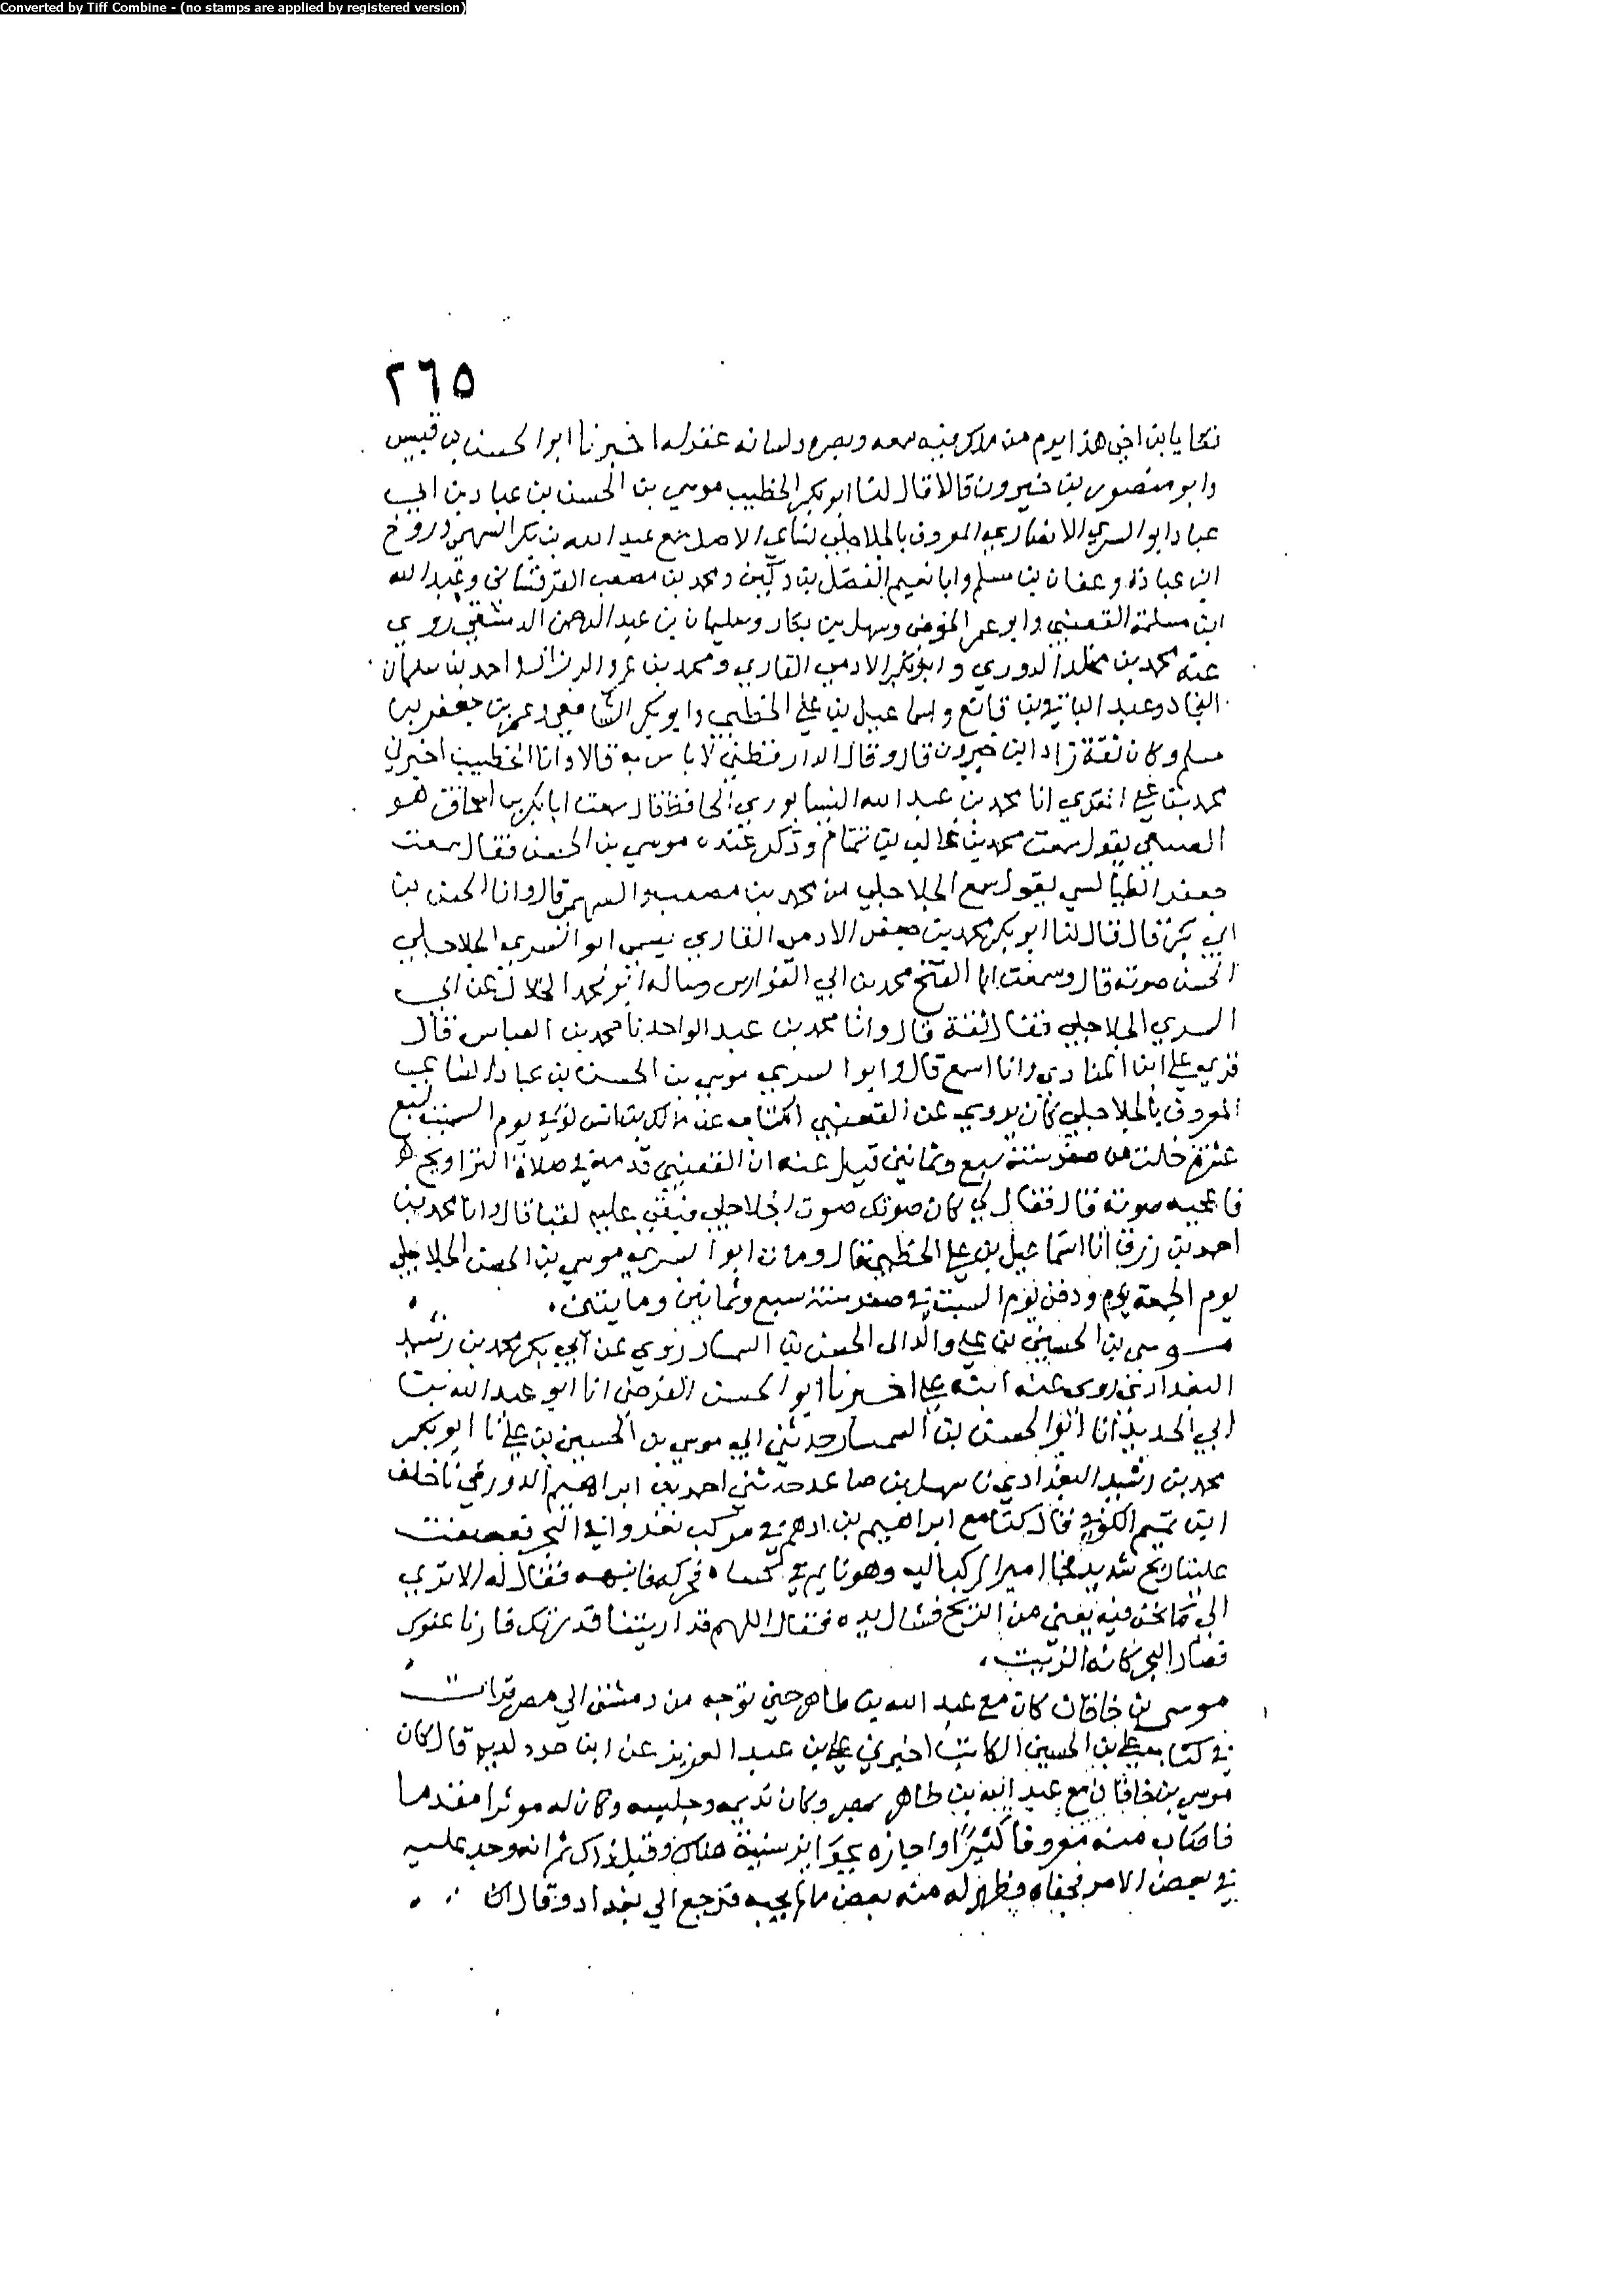 Converted by Tiff Combine - (no stamps are applied by registered version)
٢٦٥
يا بن اخي هذا يوم من ملك فيه سمعه وبصره ولسانه غفر له اخبرنا ابو الحسن بن قبيس
وابو منصور بن خيرون قالا قال لنا ابو بكر الخطيب موسي بن الحسن بن عباد بن ابي
عباد ابو السري الانصاري المعروف بالجلاجلي نسائي الاصل سمع عبد الله بن بكر السهمي وروح
ابن عبادة وعفان بن مسلم وابا نعيم الفضل بن دكين ومحمد بن مصعب القرقساني وعبد الله
ابن مسلمة القعنبي وابو عمر الحوضي وسهل بن بكار وسليمان بن عبد الرحمن الدمشقي روي
عنه محمد بن مخلد الدوري وابو بكر الادمي القاري ومحمد بن عمرو الرزاز واحمد بن سلمان
النجاد وعبد الباقي بن قانع واسماعيل بن علي الخطبي وابو بكر الشافعي وعمر بن جعفر بن
سلم وكان ثقة زاد ابن خيرون قال وقال الدارقطني لا باس به قالا وانا الخطيب اخبرني
محمد بن علي المقري انا محمد بن عبد الله النيسابوري الحافظ قال سمعت ابا بكر بن اسحاق هو
الصبغي يقول سمعت محمد بن غالب بن تمتام وذكر عنده موسي بن الحسن فقال سمعت
جعفر الطيالسي يقول سمع الجلاجلي من محمد بن مصعب والسهمي قال وانا الحسن بن
ابي بكر قال قال لنا ابو بكر محمد بن جعفر الادمي القاري يسمي ابو السري الجلاجلي
لحسن صوته قال وسمعت ابا الفتح محمد بن ابي الفوارس وساله ابو محمد الخلال عن ابي
السري الجلاجلي فقال ثقة قال وانا محمد بن عبد الواحد نا محمد بن العباس قال
قري علي ابن المنادي وانا اسمع قال وابو السري موسي بن الحسن بن عباد النساي
المعروف بالجلاجلي كان يروي عن القعنبي الكتاب عن مالك بن انس توفي يوم السبت لسبع
عشرة خلت من صفر سنة سبع وثمانين قيل عنه ان القعنبي قدمه في صلاة التراويح
فاعجبه صوته قال فقال لي كان صوتك صوت الجلاجل فبقي عليه لقبا قال وانا محمد بن
احمد بن رزق انا اسماعيل بن علي الخطبي قال ومات ابو السري موسي بن الحسن الجلاجلي
يوم الجمعة ودفن يوم السبت في صفر سنة سبع وثمانين ومايتين
موسى بن الحسين بن علي والد ابي الحسن بن السمسار روي عن ابي بكر محمد بن رشيد
البغدادي روى عنه ابنه علي اخبرنا ابو الحسن الفرضي انا ابو عبد الله بن
ابي الحديد انا ابو الحسن بن السمسار حدثني ابي موسي بن الحسين بن علي نا ابو بكر
محمد بن رشيد البغدادي نا سهل بن صاعد حدثني احمد بن ابراهيم الدورقي نا خلف
ابن تميم الكوفي قال كنا مع ابراهيم بن ادهم في مركب نغزوا في البحر فعصفت
علينا ريح شديد فجا امير المركب اليه وهو نايم في كساه فحركه فانتبه فقال له الا تري
الى ما نحن فيه يعني من الريح فشال يده فقال اللهم قد اريتنا قدرتك فارنا عفوك
فصار البحر كانه الزيت
موسى بن خاقان كان مع عبد الله بن طاهر حين توجه من دمشق الي مصر قرات
في كتاب علي بن الحسين الكاتب اخبرني علي بن عبد العزيز عن ابن قال كان
موسي بن خاقان مع عبد الله بن طاهر بمصر وكان نديمه وجليسه وكان له موثرا مقدما
فاصاب منه معروفا كثيرا واجازه بجوايز سنية هناك وقبل ذاك ثم انه وجد عليه
في بعض الامر فجفاه وظهر له منه بعض ما لم يحبه فرجع الي بغداد وقال